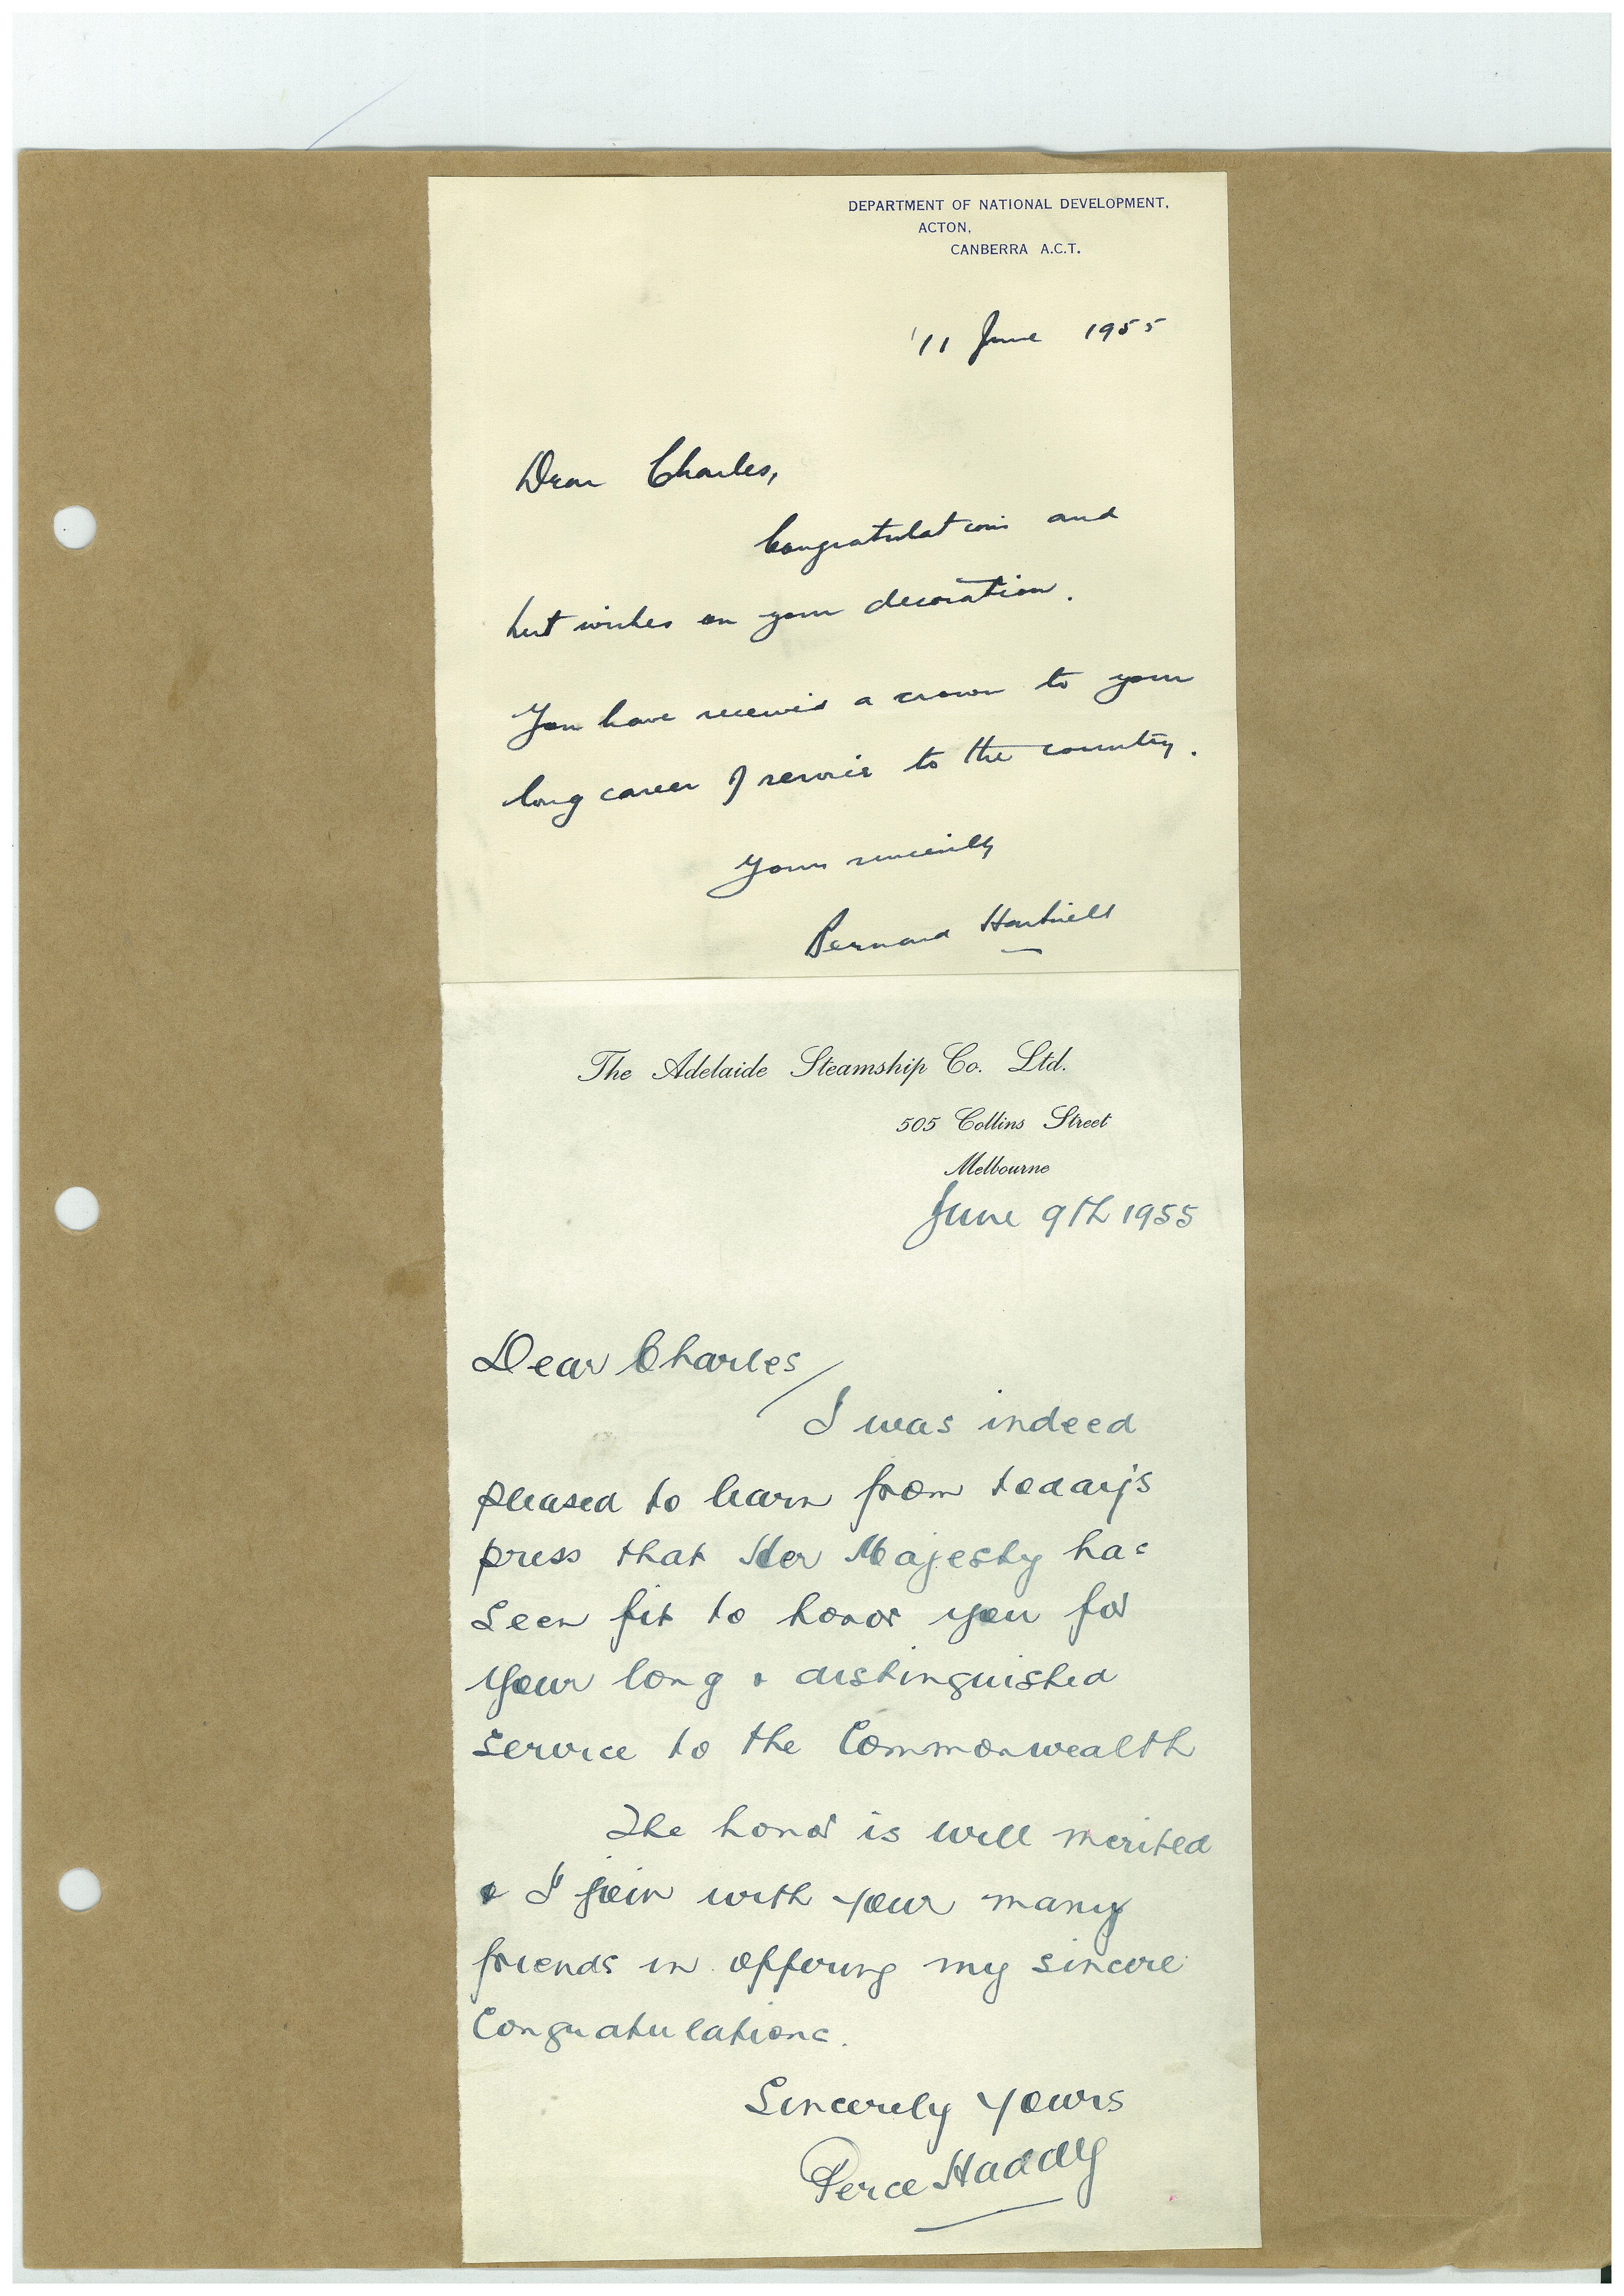 DEPARTMENT OF NATIONAL DEVELOPMENT,
ACTON,
CANBERRA A.C.T.
11 June 1955
Dear Charles,
Congratulations and
best wishes on your decoration.
You have received a crown to your
long career of service to the country.
Yours sincerely
Bernard Hartnell
The Adelaide Steamship Co. Ltd.
505 Collins Street
Melbourne
June 9th 1955
Dear Charles
I was indeed
pleased to learn from today's
press that Her Majesty has
seen fit to honor you for
your long & distinguished
service to the Commonwealth
The honor is well merited
& I join with your many
friends in offering my sincere
Congratulations.
Sincerely yours
Perce Haddy